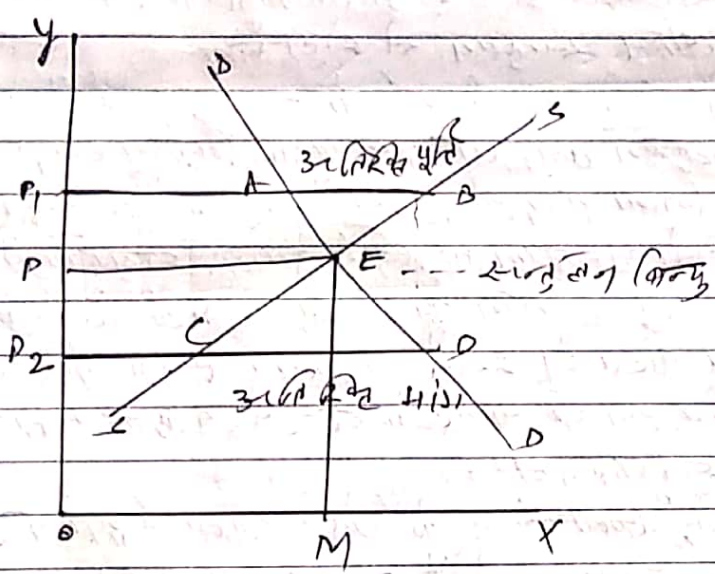 Y
D
S
अतिरिक्त पूर्ति
P₁ A B
P E ---- सन्तुलन बिन्दु
C
P₂ D
अतिरिक्त मांग
S
D
O M X